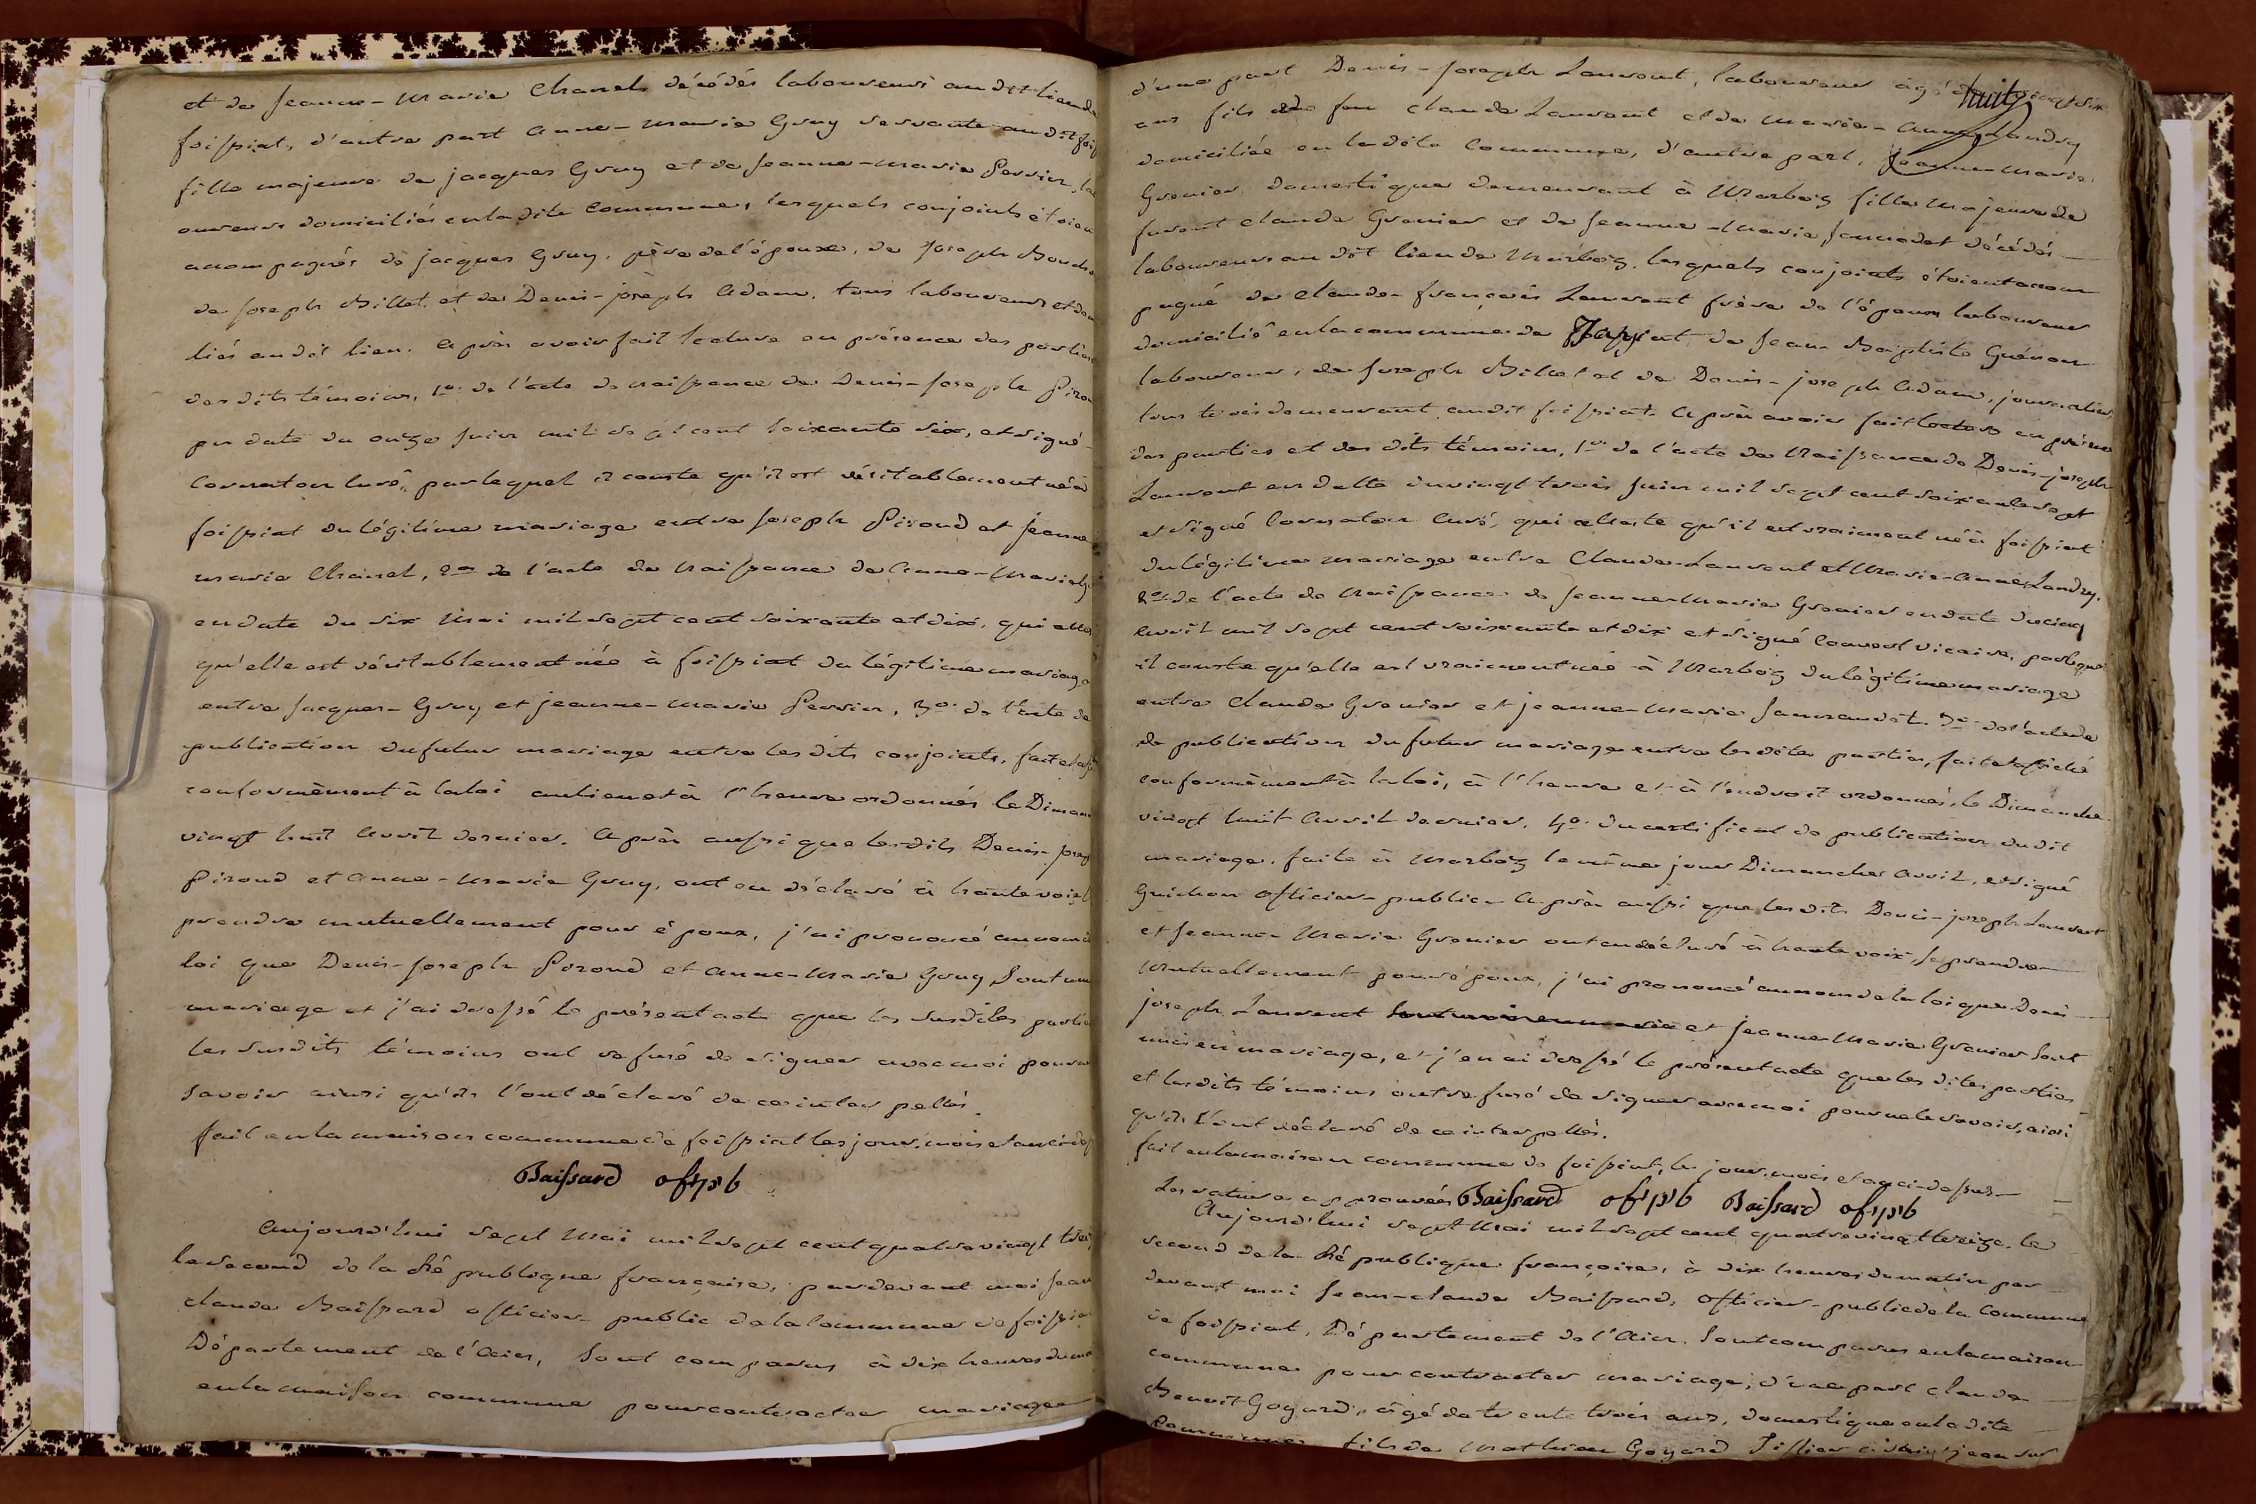 et de Jeanne-Marie Chanel décédés laboureurs au dit lieu de
foissiat, d'autre part anne-marie Gruy servante au dit foiss
fille majeure de jacques Gruy et de Jeanne-marie Perrin, la
oureurs domiciliés en la dite commune, lesquels conjoints étoien
accompagnés de jacques Gruy, père de l'épouse, de Joseph
de Joseph Billet, et de Denis-joseph Adam, tous laboureurs et dom
liés au dit lieu. Après avoir fait lecture en présence des parties
des dits témoins, 1º de l'acte de naissance de Denis-Joseph Pirou
en date du onze juin mil sept cent soixante six, et signé
Cormaton curé, par lequel il conste qu'il est véritablement né à
foissiat du légitime mariage entre Joseph Piroud et Jeanne
marie Chanel, 2º de l'acte de naissance de Anne-Marie G
en date du six Mai mil sept cent soixante et dix, qui attes
qu'elle est véritablement née à foissiat du légitime mariage
entre Jacques-Gruy et jeanne-marie Perrin, 3º de l'acte de
publication du futur mariage entre les dits conjoints, fait et
conformèment à la loi au lieu et à l'heure ordonnés le Diman
vingt huit Avril dernier. Après aussi que les dits Denis-Josep
Piroud et Anne-Marie Gruy, ont eu déclaré à haute voix
prendre mutuellement pour époux, j'ai prononcé au nom
loi que Denis-Joseph Piroud et Anne-Marie Gruy, sont un
mariage et j'ai dressé le présent acte que les susdites partie
les susdits témoins ont refusé de signer avec moi pour
savoir ainsi qu'ils l'ont déclaré de ce interpellés.
fait en la maison commune de foissiat les jour, mois et an ci-des
Baissard off. pub
Aujourd'hui sept Mai mil sept cent quatre vingt treiz
le second de la République française, par devant moi Jean
claude Baissard officier public de la commune de foissia
Département de l'Ain, sont comparus à dix heures du ma
en la maison commune pour contracter mariage
huit
d'une part Denis-Joseph Laurent, laboureur âgé de vingt six
ans fils de feu claude Laurent et de Marie-Anne Landry
domiciliée en la dite commune, d'autre part, Jeanne-Marie
Grenier, domestique demeurant à Marboz fille majeure de
furent claude Grenier et de Jeanne-Marie décédés
laboureurs au dit lieu de Marboz, lesquels conjoints étoient accom
pagné de claude-françois Laurent frère de l'époux laboureur
domicilié en la commune de Jayat, de Jean-Baptiste
laboureur, de Joseph Billet et de Denis-joseph Adam, journalier
tous trois demeurant au dit foissiat. Après avoir fait lecture en présence
des parties et des dits témoins, 1º de l'acte de Naissance de Denis-joseph
Laurent en datte du vingt trois juin mil sept cent soixante sept
et signé Cormaton curé, qui atteste qu'il est vraiment né à foissiat
du légitime mariage entre Claude-Laurent et Marie-Anne Landry,
2º de l'acte de Naissance de Jeanne-Marie Grenier en date du cinq
Avril mil sept cent soixante et dix et signé vicaire, par lequel
il conste qu'elle est vraiment née à Marboz du légitime mariage
entre Claude Grenier et jeanne-marie 3º de l'acte
de publication du futur mariage entre les dites parties, fait et affiché
conformèment à la loi, à l'heure et à l'endroit ordonnés, le Dimanche
vingt huit Avril dernier, 4º du certificat de publication du dit
mariage, faite à Marboz le même jour Dimanche Avril, et signé
Guichon officier-public. Après aussi que les dits Denis-joseph Laurent
et Jeanne-Marie Grenier ont eu déclaré à haute voix, se prendre
Mutuellement pour époux, j'ai prononcé au nom de la loi que Denis
joseph Laurent et jeanne-Marie Grenier sont
unis en mariage, et j'en ai dressé le présent acte que les dites parties
et les dits témoins ont refusé de signer avec moi pour ne le savoir, ainsi
qu'ils l'ont déclaré de ce interpellés.
fait en la maison commune de foissiat, les jour, mois et an ci-dessus
Les ratures approuvées Baissard off. pub Baissard off. pub
Aujourd'hui sept Mai mil sept cent quatre vingt treize, le
second de la République françoise, à dix heures du matin par
devant moi Jean-claude Baissard, officier-public de la commune
de foissiat, Département de l'Ain. Sont comparus en la maison
commune pour contracter mariage, d'une part claude
Benoit Goyard, âgé de trente trois ans, domestique en la dite
commune, fils de Mathieu Goyard Tissier à jean sur